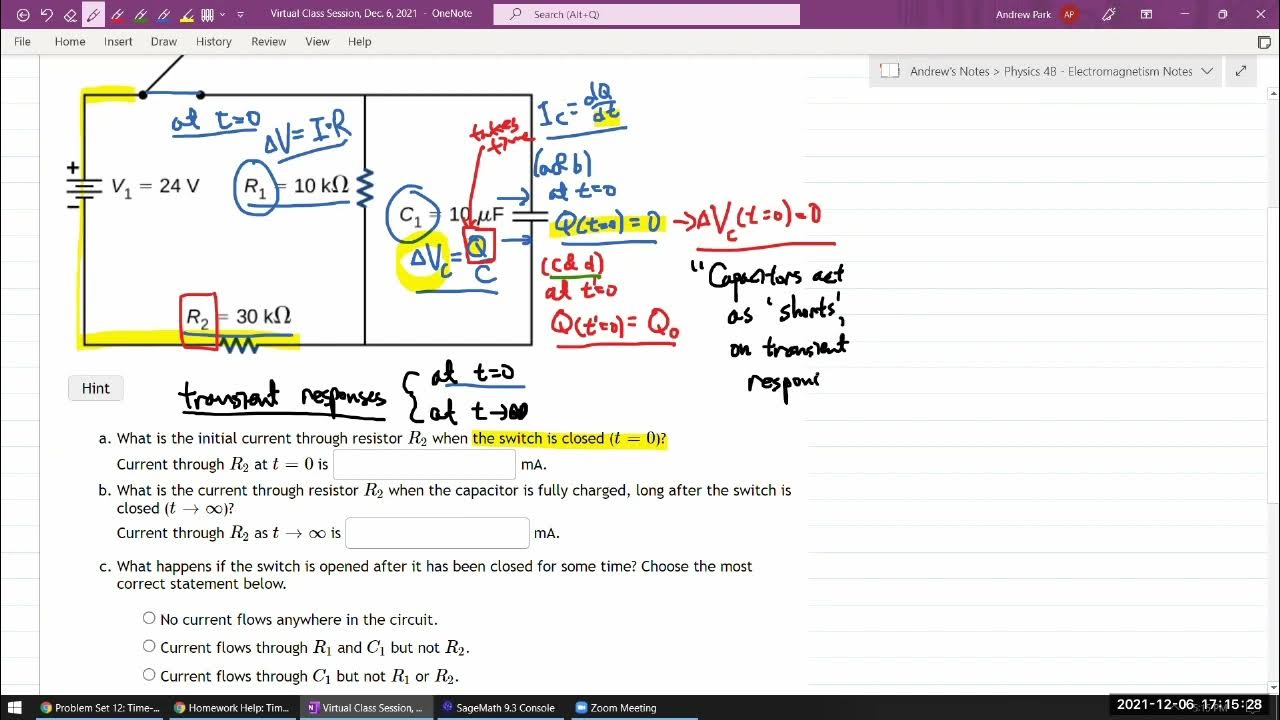 Virtual Class Session, Dec. 6, 2021 - OneNote
Search (Alt+Q)
Andrew Park
AP
File Home Insert Draw History Review View Help
Andrew's Notes > Physics 4B - Electromagnetism Notes
at t=0
ΔV = I·R
takes time
I_C = dQ/dt
+
V₁ = 24 V
−
R₁ = 10 kΩ
C₁ = 10 μF
ΔV_C = Q/C
(a & b)
at t=0
Q(t=0) = 0 → ΔV_C(t=0) = 0
(c & d)
at t'=0
Q(t'=0) = Q₀
"Capacitors act
as 'shorts',
on transient
respons
R₂ = 30 kΩ
Hint
transient responses { at t=0
at t→∞
a. What is the initial current through resistor R₂ when the switch is closed (t = 0)?
Current through R₂ at t = 0 is mA.
b. What is the current through resistor R₂ when the capacitor is fully charged, long after the switch is
closed (t → ∞)?
Current through R₂ as t → ∞ is mA.
c. What happens if the switch is opened after it has been closed for some time? Choose the most
correct statement below.
No current flows anywhere in the circuit.
Current flows through R₁ and C₁ but not R₂.
Current flows through C₁ but not R₁ or R₂.
Problem Set 12: Time-... Homework Help: Tim... Virtual Class Session, ... SageMath 9.3 Console Zoom Meeting
2021-12-06 17:15:28